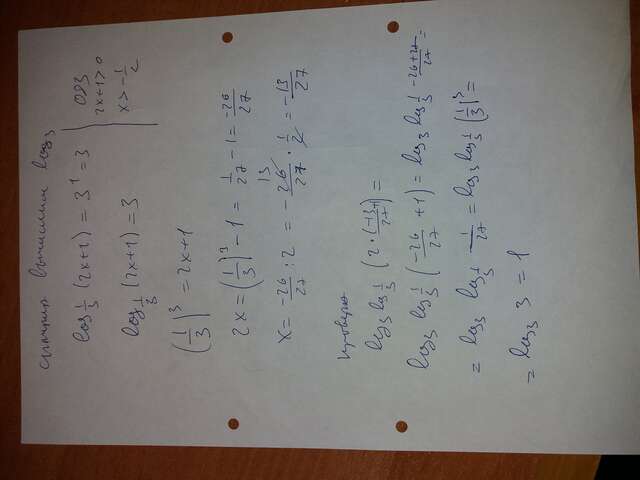 сначала вычислим log₃
log 1/3 (2x+1) = 3¹ = 3
ОДЗ
2x+1>0
x>-1/2
log 1/3 (2x+1) = 3
(1/3)³ = 2x+1
2x = (1/3)³ - 1 = 1/27 - 1 = -26/27
x = -26/27 : 2 = -26/27 · 1/2 = -13/27
13
проверка
log₃ log 1/3 (2 · (-13)/27) =
log₃ log 1/3 (-26/27 + 1) = log₃ log 1/3 -26+27/27 =
= log₃ log 1/3 1/27 = log₃ log 1/3 (1/3)³ =
= log₃ 3 = 1